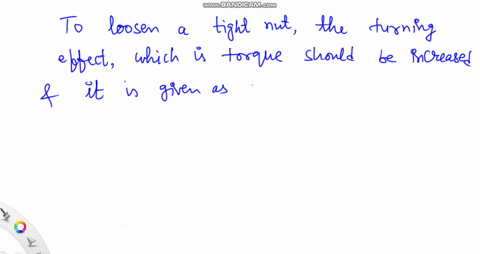 www.BANDICAM.com
To loosen a tight nut, the turning
effect, which is torque should be increased
& it is given as